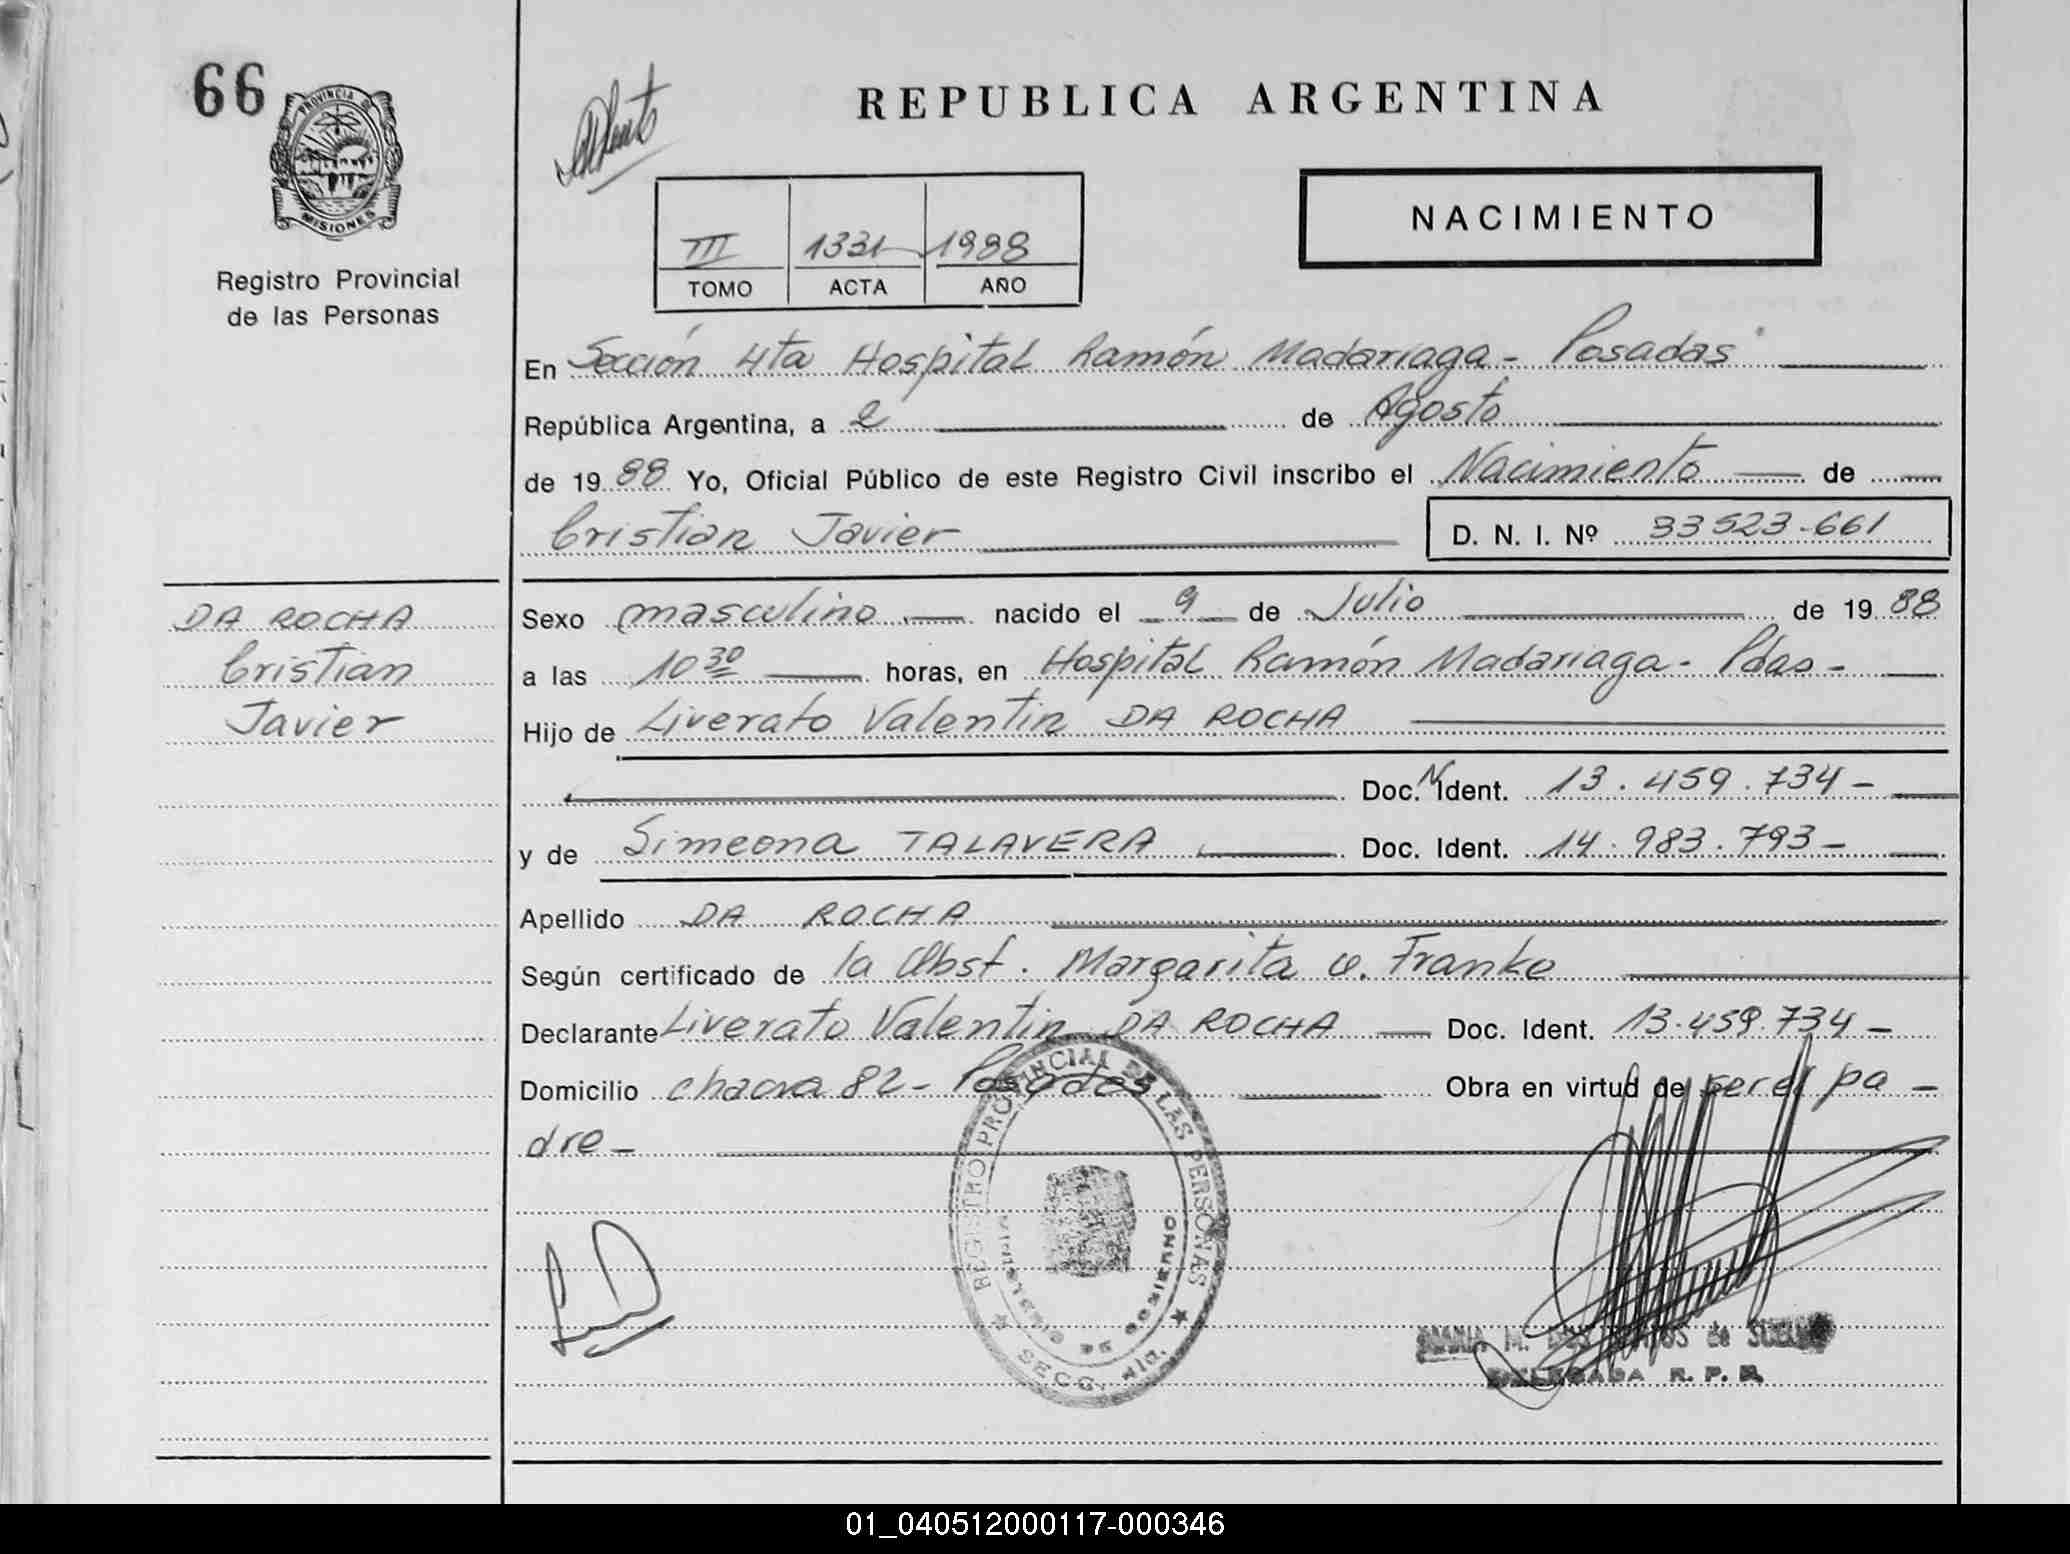 66
PROVINCIA DE
MISIONES
Registro Provincial
de las Personas
REPUBLICA ARGENTINA
NACIMIENTO
III 1331 1988
TOMO ACTA AÑO
En Sección 4ta Hospital Ramón Madariaga - Posadas
República Argentina, a 2 de Agosto
de 1988 Yo, Oficial Público de este Registro Civil inscribo el Nacimiento de
Cristian Javier D. N. I. Nº 33523-661
DA ROCHA
Cristian
Javier
Sexo masculino nacido el 9 de Julio de 1988
a las 10 30 horas, en Hospital Ramón Madariaga - Pdas -
Hijo de Liverato Valentin DA ROCHA
Doc. N Ident. 13.459.734 -
y de Simeona TALAVERA Doc. Ident. 14.983.793 -
Apellido DA ROCHA
Según certificado de la Obst. Margarita Franke
Declarante Liverato Valentin DA ROCHA Doc. Ident. 13.459.734 -
Domicilio chacra 82 - Posadas Obra en virtud de ser el pa -
dre -
REGISTRO PROVINCIAL DE LAS PERSONAS
DE GOBIERNO
M. de
DELEGADA R. P. P.
01_040512000117-000346